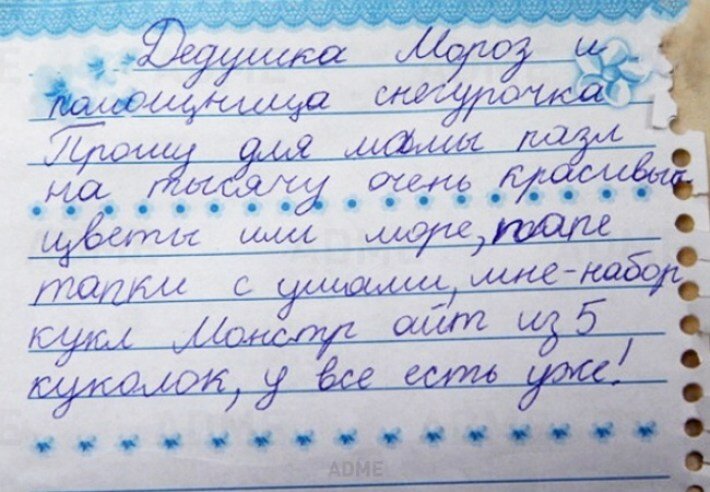 Дедушка Мороз и
помощница снегурочка
Прошу для мамы пазл
на тысячу очень красивые
цветы или море, папе
тапки с ушами, мне-набор
кукл Монстр айт из 5
куколок, у все есть уже!
ADME